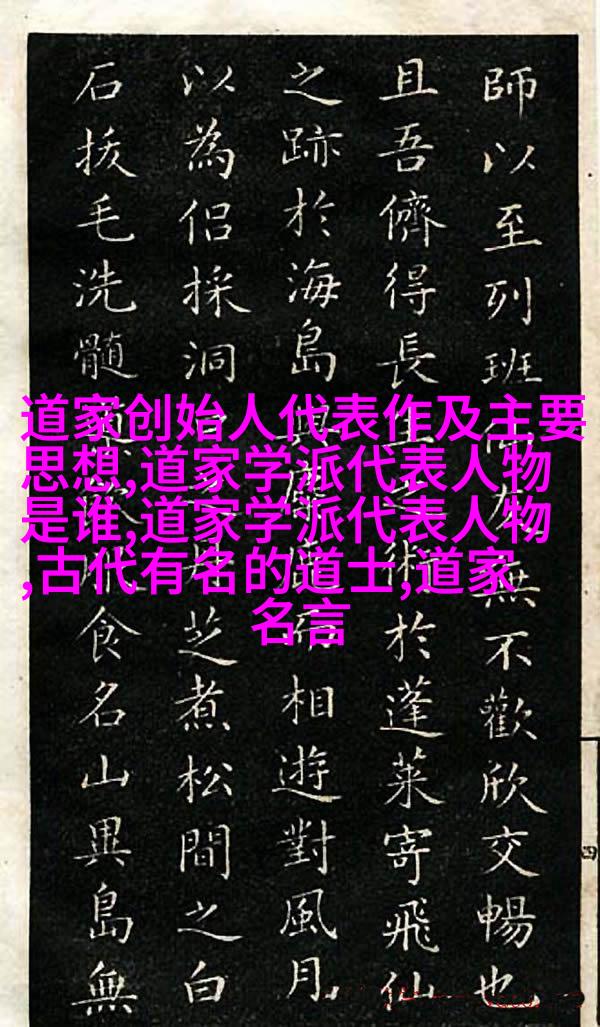 道家创始人代表作及主要
思想,道家学派代表人物
是谁,道家学派代表人物
,古代有名的道士,道家
名言
師以至列班仙友無不歡欣交暢也
且吾儕得長生之術於蓬萊寄飛仙
之跡於海島與麋鹿而相遊對風月
以為侶採洞之芝煮松間之白
石拔毛洗髓服食名山異島無
四